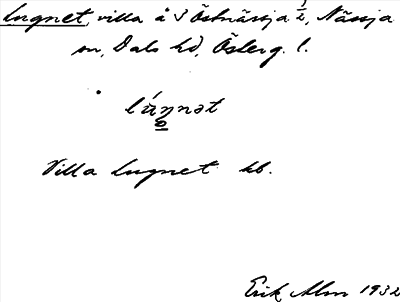 Lugnet, villa å S Östnässja 1/2, Nässja
sn, Dals hd, Österg. l.
lúŋnət
Villa Lugnet kb.
Erik Alm 1932